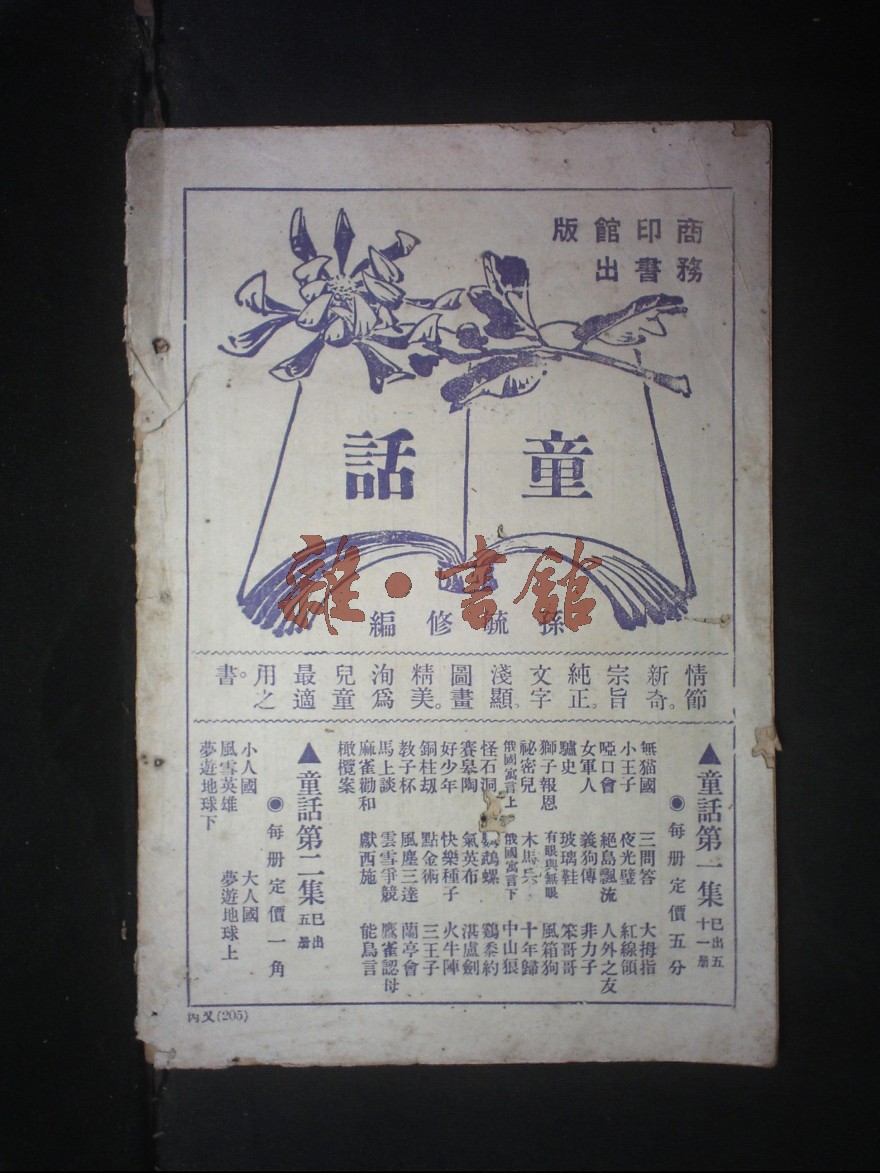 商務
印書
館出
版
童話
孫毓修編
雜·書館
情節
新奇。
宗旨
純正。
文字
淺顯。
圖畫
精美。
洵爲
兒童
最適
用之
書。
▲童話第一集 已出五十一册
●每册定價五分
無猫國 三問答 大拇指
小王子 夜光璧 紅線領
啞口會 絕島飄流 人外之友
女軍人 義狗傳 非力子
驢史 玻璃鞋 笨哥哥
獅子報恩 有眼與無眼 風箱狗
祕密兒 木馬兵 十年歸
俄國寓言上 俄國寓言下 中山狼
怪石洞 鵡螺 鷄黍約
賽皋陶 氣英布 湛盧劍
好少年 快樂種子 火牛陣
銅柱劫 點金術 三王子
教子杯 風塵三達 蘭亭會
馬上談 雲雪爭競 鷹雀認母
麻雀勸和 獻西施 能鳥言
橄欖案
▲童話第二集 已出五册
●每册定價一角
小人國 大人國
風雪英雄 夢遊地球上
夢遊地球下
丙又(205)